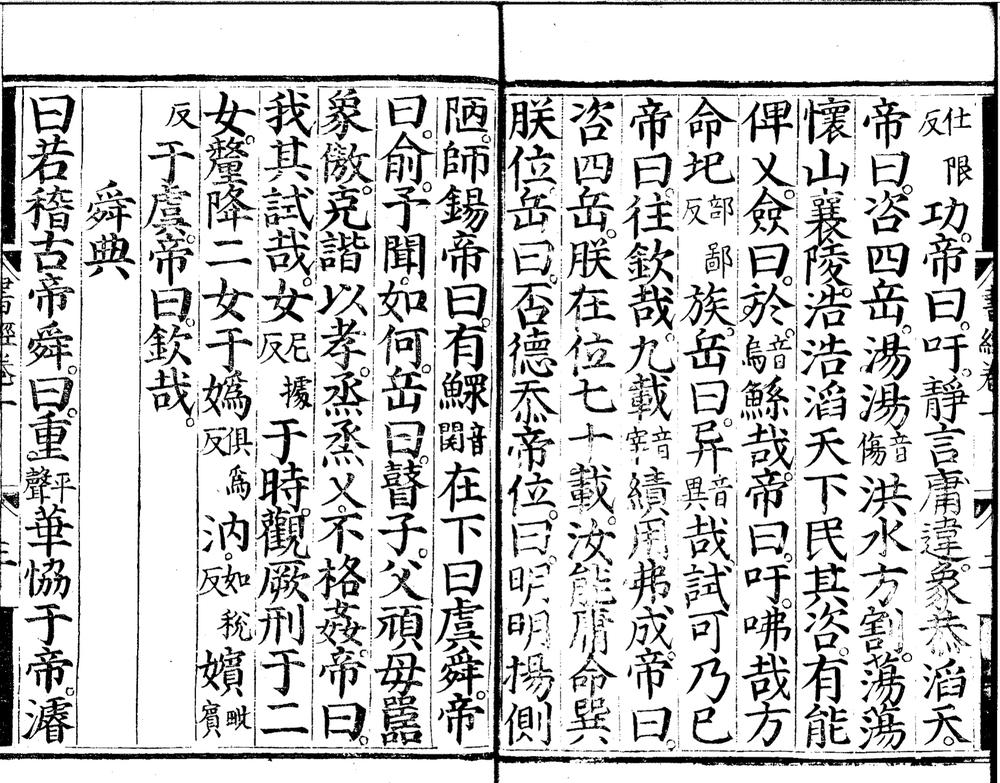 仕限反功。帝曰。吁。靜言庸違。象恭滔天。
帝曰。咨四岳。湯湯音傷洪水方割。蕩蕩
懷山襄陵。浩浩滔天。下民其咨。有能
俾乂。僉曰。於。音烏鯀哉。帝曰。吁。咈哉。方
命圯部鄙反族。岳曰。异音異哉。試可乃已
帝曰。往欽哉。九載音宰績用弗成。帝曰。
咨四岳。朕在位七十載。汝能庸命巽
朕位。岳曰。否德忝帝位。曰。明明揚側
陋。師錫帝曰。有鰥音關在下曰虞舜。帝
曰。俞。予聞。如何。岳曰。瞽子。父頑母嚚
象傲。克諧以孝。烝烝乂。不格姦。帝曰。
我其試哉。女尼據反于時。觀厥刑于二
女。釐降二女于媯俱爲反汭。如稅反嬪毗賓
反于虞。帝曰。欽哉。
舜典
曰若稽古帝舜。曰。重平聲華協于帝。濬